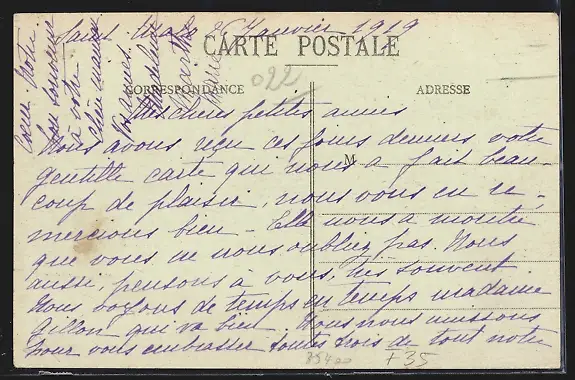 Saint Malo 26 Janvier 1919
CARTE POSTALE
022
CORRESPONDANCE
ADRESSE
M
Mes chères petites amies
Nous avons reçu ces jours derniers votre
gentille carte qui nous a fait beau-
coup de plaisir, nous vous en re-
mercions bien - Elle nous a montré
que vous ne nous oubliez pas. Nous
aussi, pensons à vous, très souvent
Nous voyons de temps en temps madame
Gillon qui va bien. Nous nous unissons
pour vous embrasser toutes trois de tout notre
coeur Votre
bon souvenir
à votre
chère maman
Vos amies
Madeleine
Marthe
85400
+35